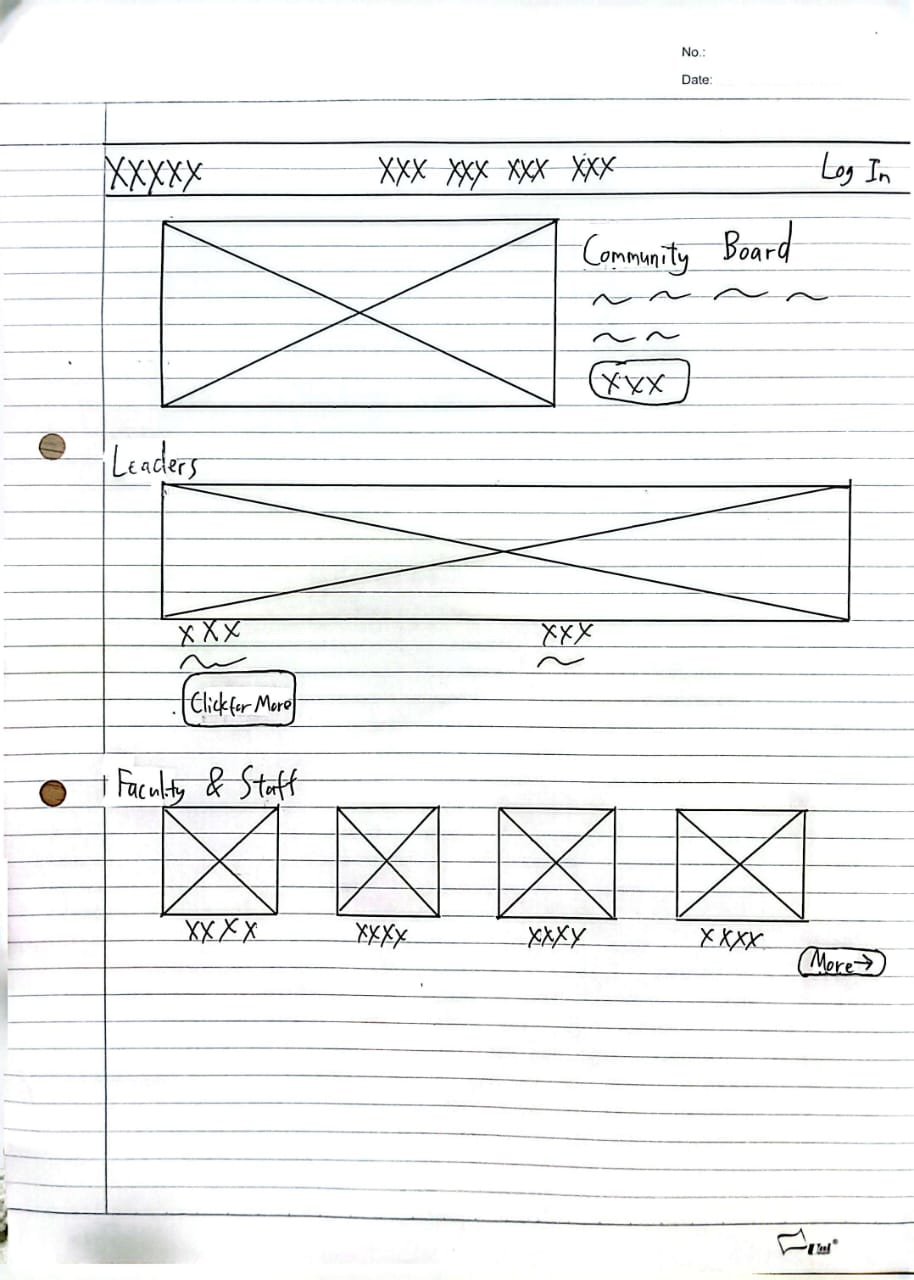 No.:
Date:
XXXXX XXX XXX XXX XXX Log In
Community Board
XXX
Leaders
XXX XXX
Click for More
Faculty & Staff
XXXX XXXX XXXX XXXX
More→